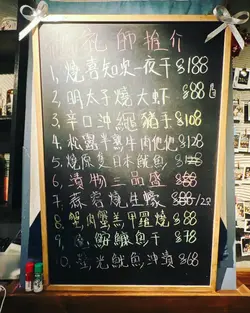 師推介
1, 燒喜知次一夜干 $188
2, 明太子燒大蝦 $88
3, 辛口沖繩豬手 $108
4, 松露半熟牛肉他他 $128
5, 燒原隻日本魷魚 $128
6, 漬物三品盛 $88
7, 蒜蓉燒生蠔 $88/2隻
8, 蟹肉蟹羔甲羅燒 $88
9, 鱲魚干 $78
10, 螢光魷魚沖漬 $68